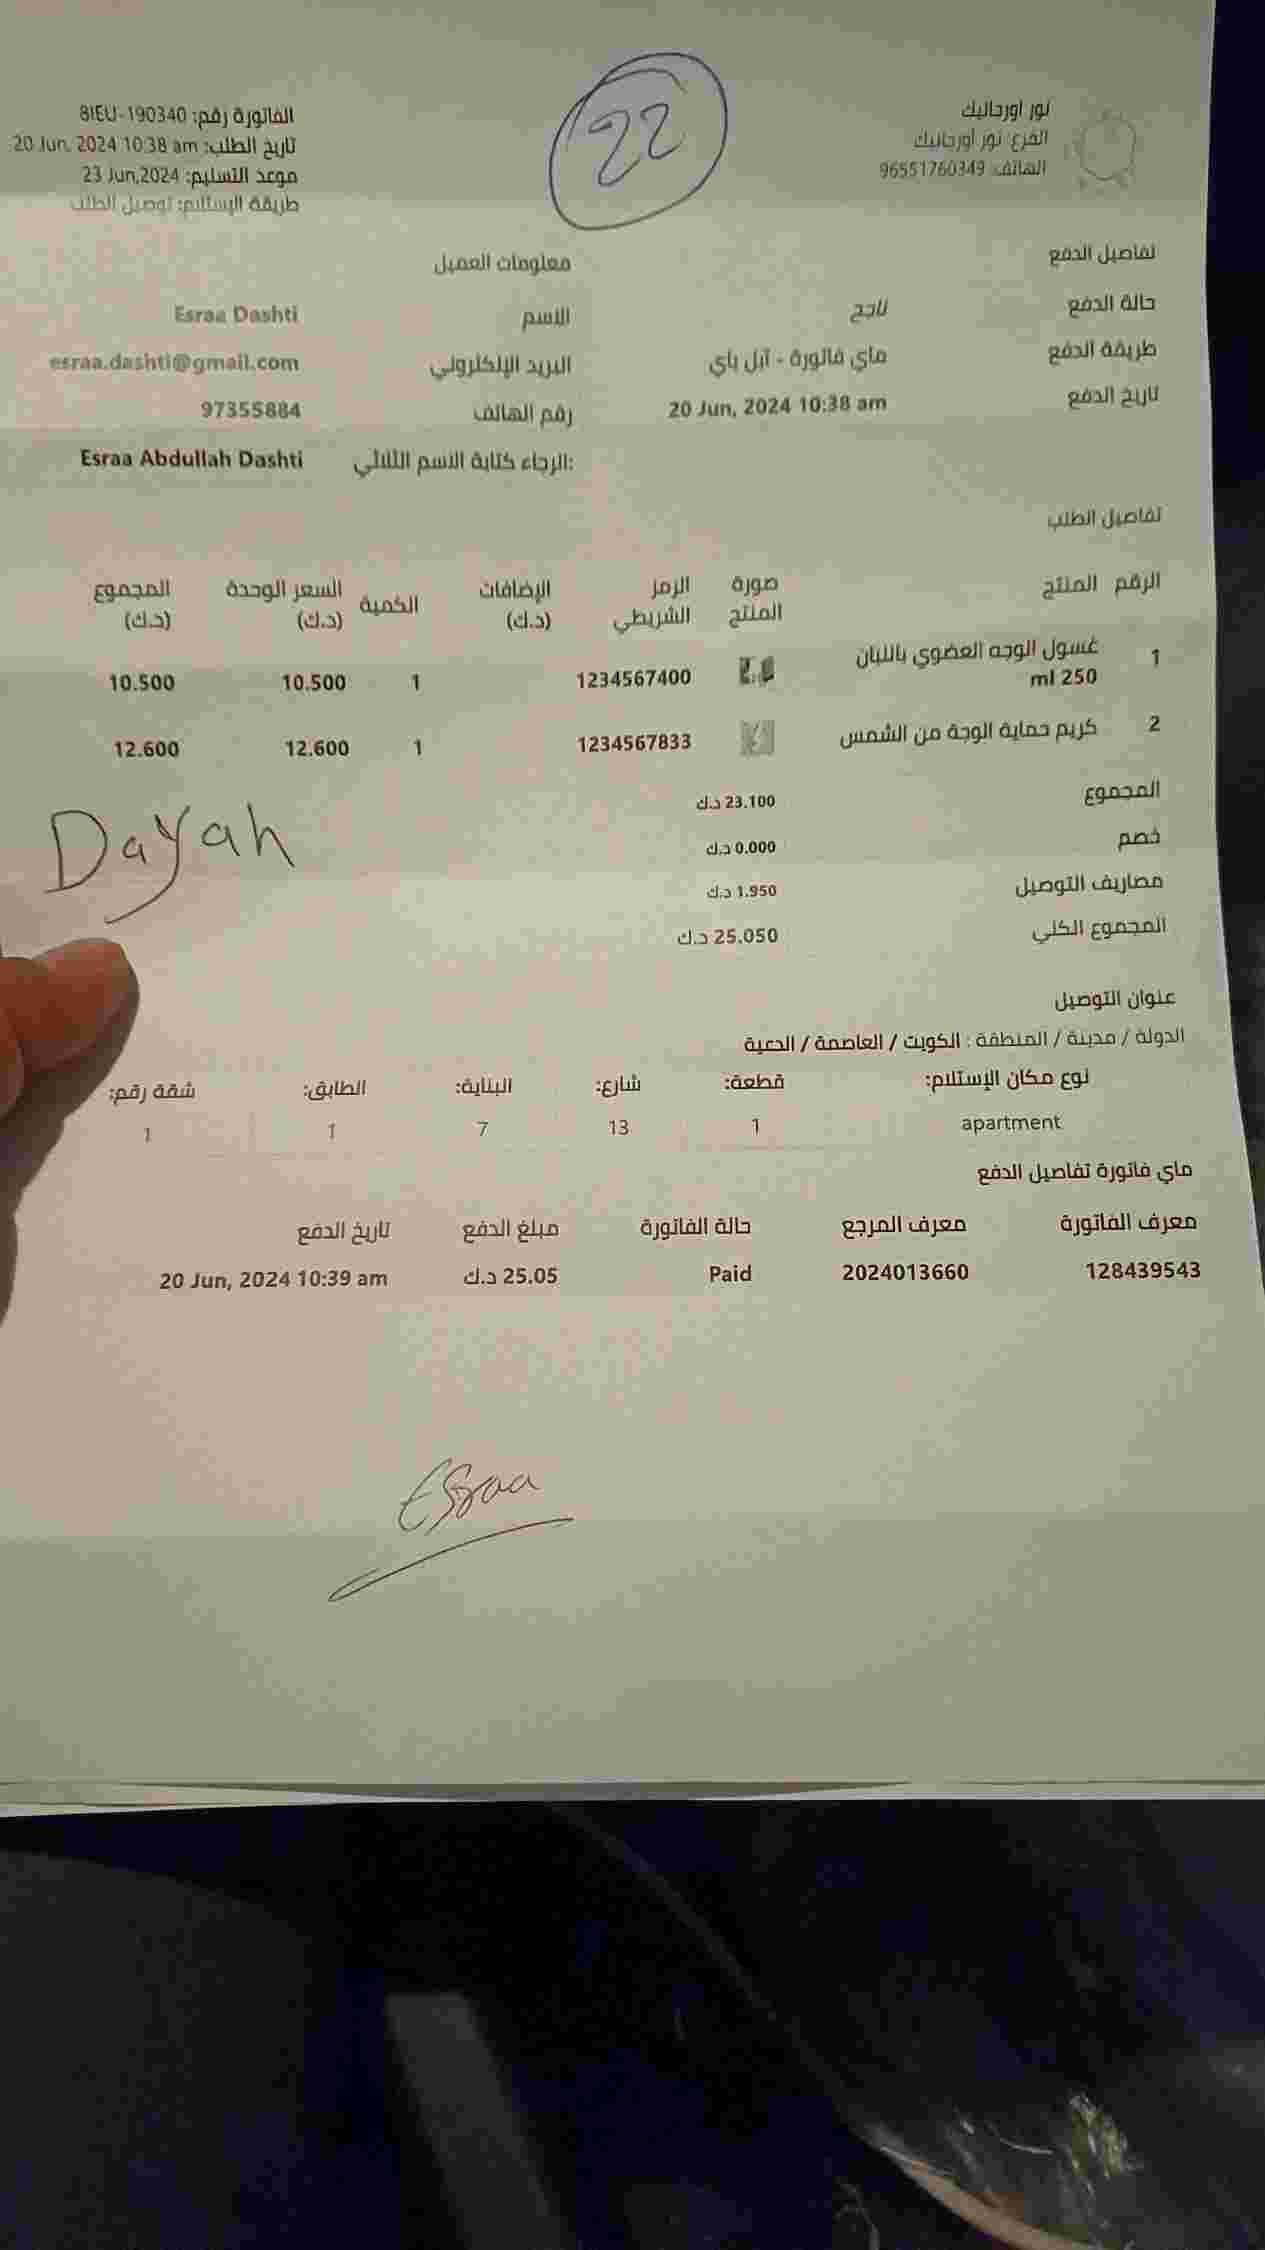 22
نور اورجانيك
الفرع: نور أورجانيك
الهاتف: 96551760349
الفاتورة رقم: 8IEU-190340
تاريخ الطلب: 20 Jun, 2024 10:38 am
موعد التسليم: 23 Jun,2024
طريقة الإستلام: توصيل الطلب
تفاصيل الدفع
حالة الدفع ناجح
طريقة الدفع ماي فاتورة - آبل باي
تاريخ الدفع 20 Jun, 2024 10:38 am
معلومات العميل
الاسم Esraa Dashti
البريد الإلكتروني esraa.dashti@gmail.com
رقم الهاتف 97355884
الرجاء كتابة الاسم الثلاثي: Esraa Abdullah Dashti
تفاصيل الطلب
الرقم المنتج صورة المنتج الرمز الشريطي الإضافات (د.ك) الكمية السعر الوحدة (د.ك) المجموع (د.ك)
1 غسول الوجه العضوي باللبان 250 ml 1234567400 1 10.500 10.500
2 كريم حماية الوجة من الشمس 1234567833 1 12.600 12.600
المجموع 23.100 د.ك
خصم 0.000 د.ك
مصاريف التوصيل 1.950 د.ك
المجموع الكلي 25.050 د.ك
Dayah
عنوان التوصيل
الدولة / مدينة / المنطقة : الكويت / العاصمة / الدعية
نوع مكان الإستلام: قطعة: شارع: البناية: الطابق: شقة رقم:
apartment 1 13 7 1 1
ماي فاتورة تفاصيل الدفع
معرف الفاتورة معرف المرجع حالة الفاتورة مبلغ الدفع تاريخ الدفع
128439543 2024013660 Paid 25.05 د.ك 20 Jun, 2024 10:39 am
Esraa